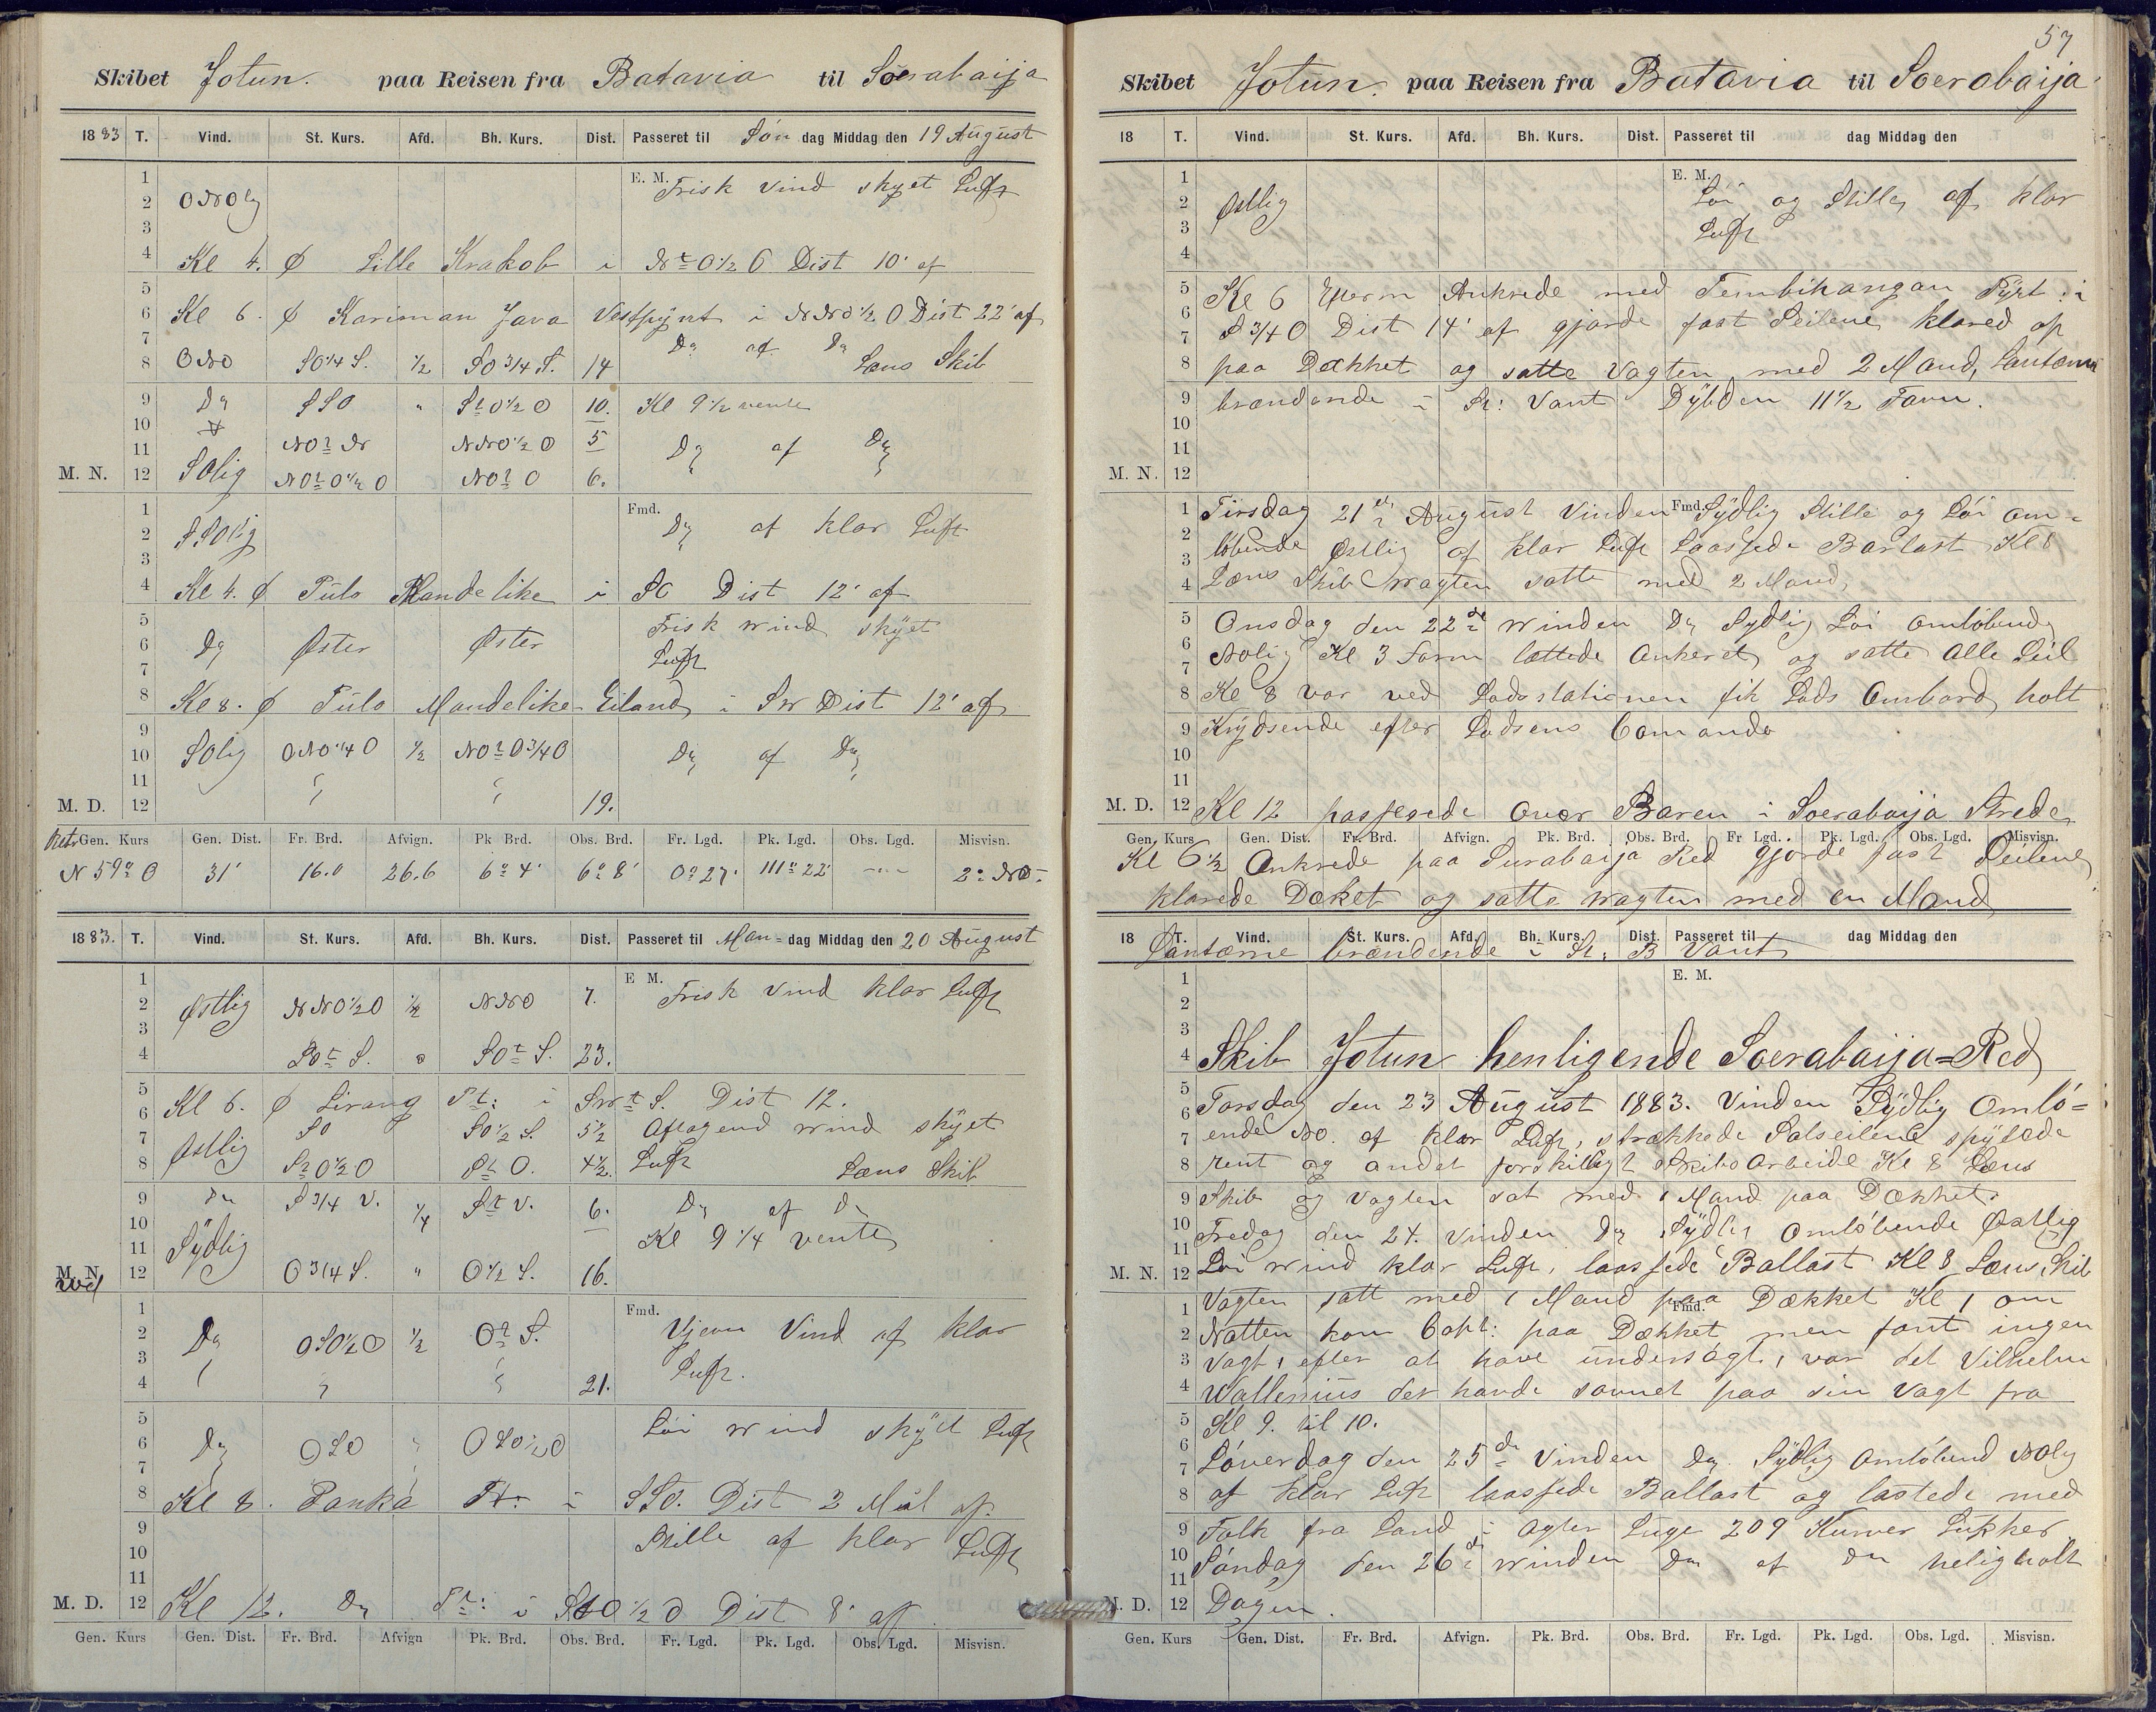 Skibet Jotun. paa Reisen fra Batavia til Soerabaija
1883 T. Vind. St. Kurs. Afd. Bh. Kurs. Dist. Passeret til Søn dag Middag den 19 August
1 E. M. Frisk Vind skyet Luft
2 ONOlig
3
4 Kl 4. Ø Lille Krakob i Nt O½ O Dist 10' af
5
6 Kl 6. Ø Kariman Java Vestpynt i NNO½ O Dist 22' af
7 Do af Do
8 ONO SO¼ S. ½ SO¾ S. 14 Læns Skib
9 Do SSO " StO½ O 10. Kl 9½ vente
10
11 NOt N NNO½ O 5 Do af Do
M. N. 12 SOlig NOt O½ O NOt O 6.
1 Fmd. Do af klar Luft
2 SSOlig
3
4 Kl 4. Ø Pulo Mandelike i SO Dist 12' af
5 Frisk wind skyet
6 Do Øster Øster Luft
7
8 Kl 8. Ø Pulo Mandelike Eiland i SW Dist 12' af
9
10 SOlig ONO¼ O ½ NOt O¾ O Do af Do
11
M. D. 12 " " 19.
Ret. Gen. Kurs Gen. Dist. Fr. Brd. Afvign. Pk Brd. Obs. Brd. Fr. Lgd. Pk. Lgd. Obs. Lgd. Misvisn.
N 59° O 31' 16.0 26.6 6° 4' 6° 8' 0° 27' 111° 22' — 2° NO
1883. T. Vind. St. Kurs. Afd. Bh. Kurs. Dist. Passeret til Man= dag Middag den 20 August
1 E M.
2 Østlig NNO½O ½ NNO 7. Frisk Vind klar Luft
3
4 SOt S. " SOt S. 23.
5
6 Kl 6. Ø Lirang Pt: i SWt S. Dist 12.
7 Østlig SO SO½ S. 5½ Aftagend wind skyet
8 StO½O St O. 4½. Luft Læns Skib
9 Do S¾ V. ¼ St V. 6. Do af Do
10 Kl 9¼ vente
11 Sydlig
M. N. 12 O¾ S. " O½ S. 16.
1 Fmd.
2 Do OSO½O ½ Ot S. Ujevn Vind af klar
3 Luft.
4 " " 21.
5 Løi wind skyet Luft
6 Do OSO " OSO½O
7
8 Kl 8. Panka Pt: i SSO. Dist 2 Mil af.
9 Stille af klar Luft
10
11
M. D. 12 Kl 12. Do Pt: i StO½O Dist 8' af
Gen. Kurs Gen. Dist. Fr. Brd. Afvign Pk. Brd. Obs. Brd. Fr. Lgd. Pk. Lgd. Obs. Lgd. Misvisn.
57
Skibet Jotun. paa Reisen fra Batavia til Soerabaija
18 T. Vind. St. Kurs. Afd. Bh. Kurs. Dist. Passeret til dag Middag den
1 E. M.
2 Østlig Løi og Stille af klar
3 Luft
4
5 Kl 6 Efterm Ankrede med Tembihangan Fyrt: i
6 S¾O Dist 14' af gjorde fast Seilene klared op
7
8 paa Dækket og satte Vagten med 2 Mand, Lantærne
9 brændende i St: Vant Dybden 11½ Favn.
10
11
M. N. 12
1 Tirsdag 21de August Vinden Fmd. Sydlig Stille og Løi om=
2 løbende Østlig af klar Luft Laassede Barlast Kl 8
3
4 Læns Skib Wagten satte med 2 Mand,
5 Onsdag den 22de winden Do Sydlig Løi omløbend
6 NOlig Kl 3 Form lættede Ankeret og satte Alle Seil
7
8 Kl 8 var ved Lodsstationen fik Lods Ombord holt
9 Krydsende efter Lodsens Comando
10
11
M. D. 12 Kl 12 passerede Over Baren i Soerabaija Strede
Gen. Kurs Gen. Dist. Fr. Brd. Afvign. Pk. Brd. Obs. Brd. Fr Lgd. Pk. Lgd. Obs. Lgd. Misvisn.
Kl 6½ Ankrede paa Surabaija Red gjorde fast Seilene
klarede Dæket og satte wagten med en Mand
18 T. Vind. St. Kurs. Afd. Bh. Kurs. Dist. Passeret til dag Middag den
Lantærne brændende i St. B Vant
1 E. M.
2
3
4 Skib Jotun henligende Soerabaija=Red
5
6 Torsdag den 23 August 1883. Vinden Sydlig Omlø=
7 ende NO. af klar Luft, strækkede Solseilene spylede
8 rent og andet forskilligt Skibs Arbeide Kl 8 Læns
9 Skib og Vagten sat med 1 Mand paa Dækket.
10 Fredag den 24. vinden Do Sydlig omløbende Østlig
11
M. N. 12 Løi wind klar Luft, laassede Ballast Kl 8 Læns Skib
1 Vagten satt med 1 Mand paa Dækket Kl 1 om
Fmd.
2 Natten kom Capt: paa Dækket men fant ingen
3 Vagt, efter at have undersøgt, var det Vilhelm
4 Wallenius der havde sovnet paa sin Vagt fra
5 Kl 9. til 10.
6
7 Løverdag den 25de Vinden Do Sydlig Omløbend NOlig
8 af klar Luft laassede Ballast og lastede med
9 Folk fra Land i Agter Luge 209 Kurver Sukker
10 Søndag den 26de winden Do af Do helig holt
11
M. D. 12 Dagen.
Gen. Kurs Gen. Dist. Fr. Brd. Afvign. Pk. Brd. Obs. Brd. Fr. Lgd. Pk. Lgd. Obs. Lgd. Misvisn.